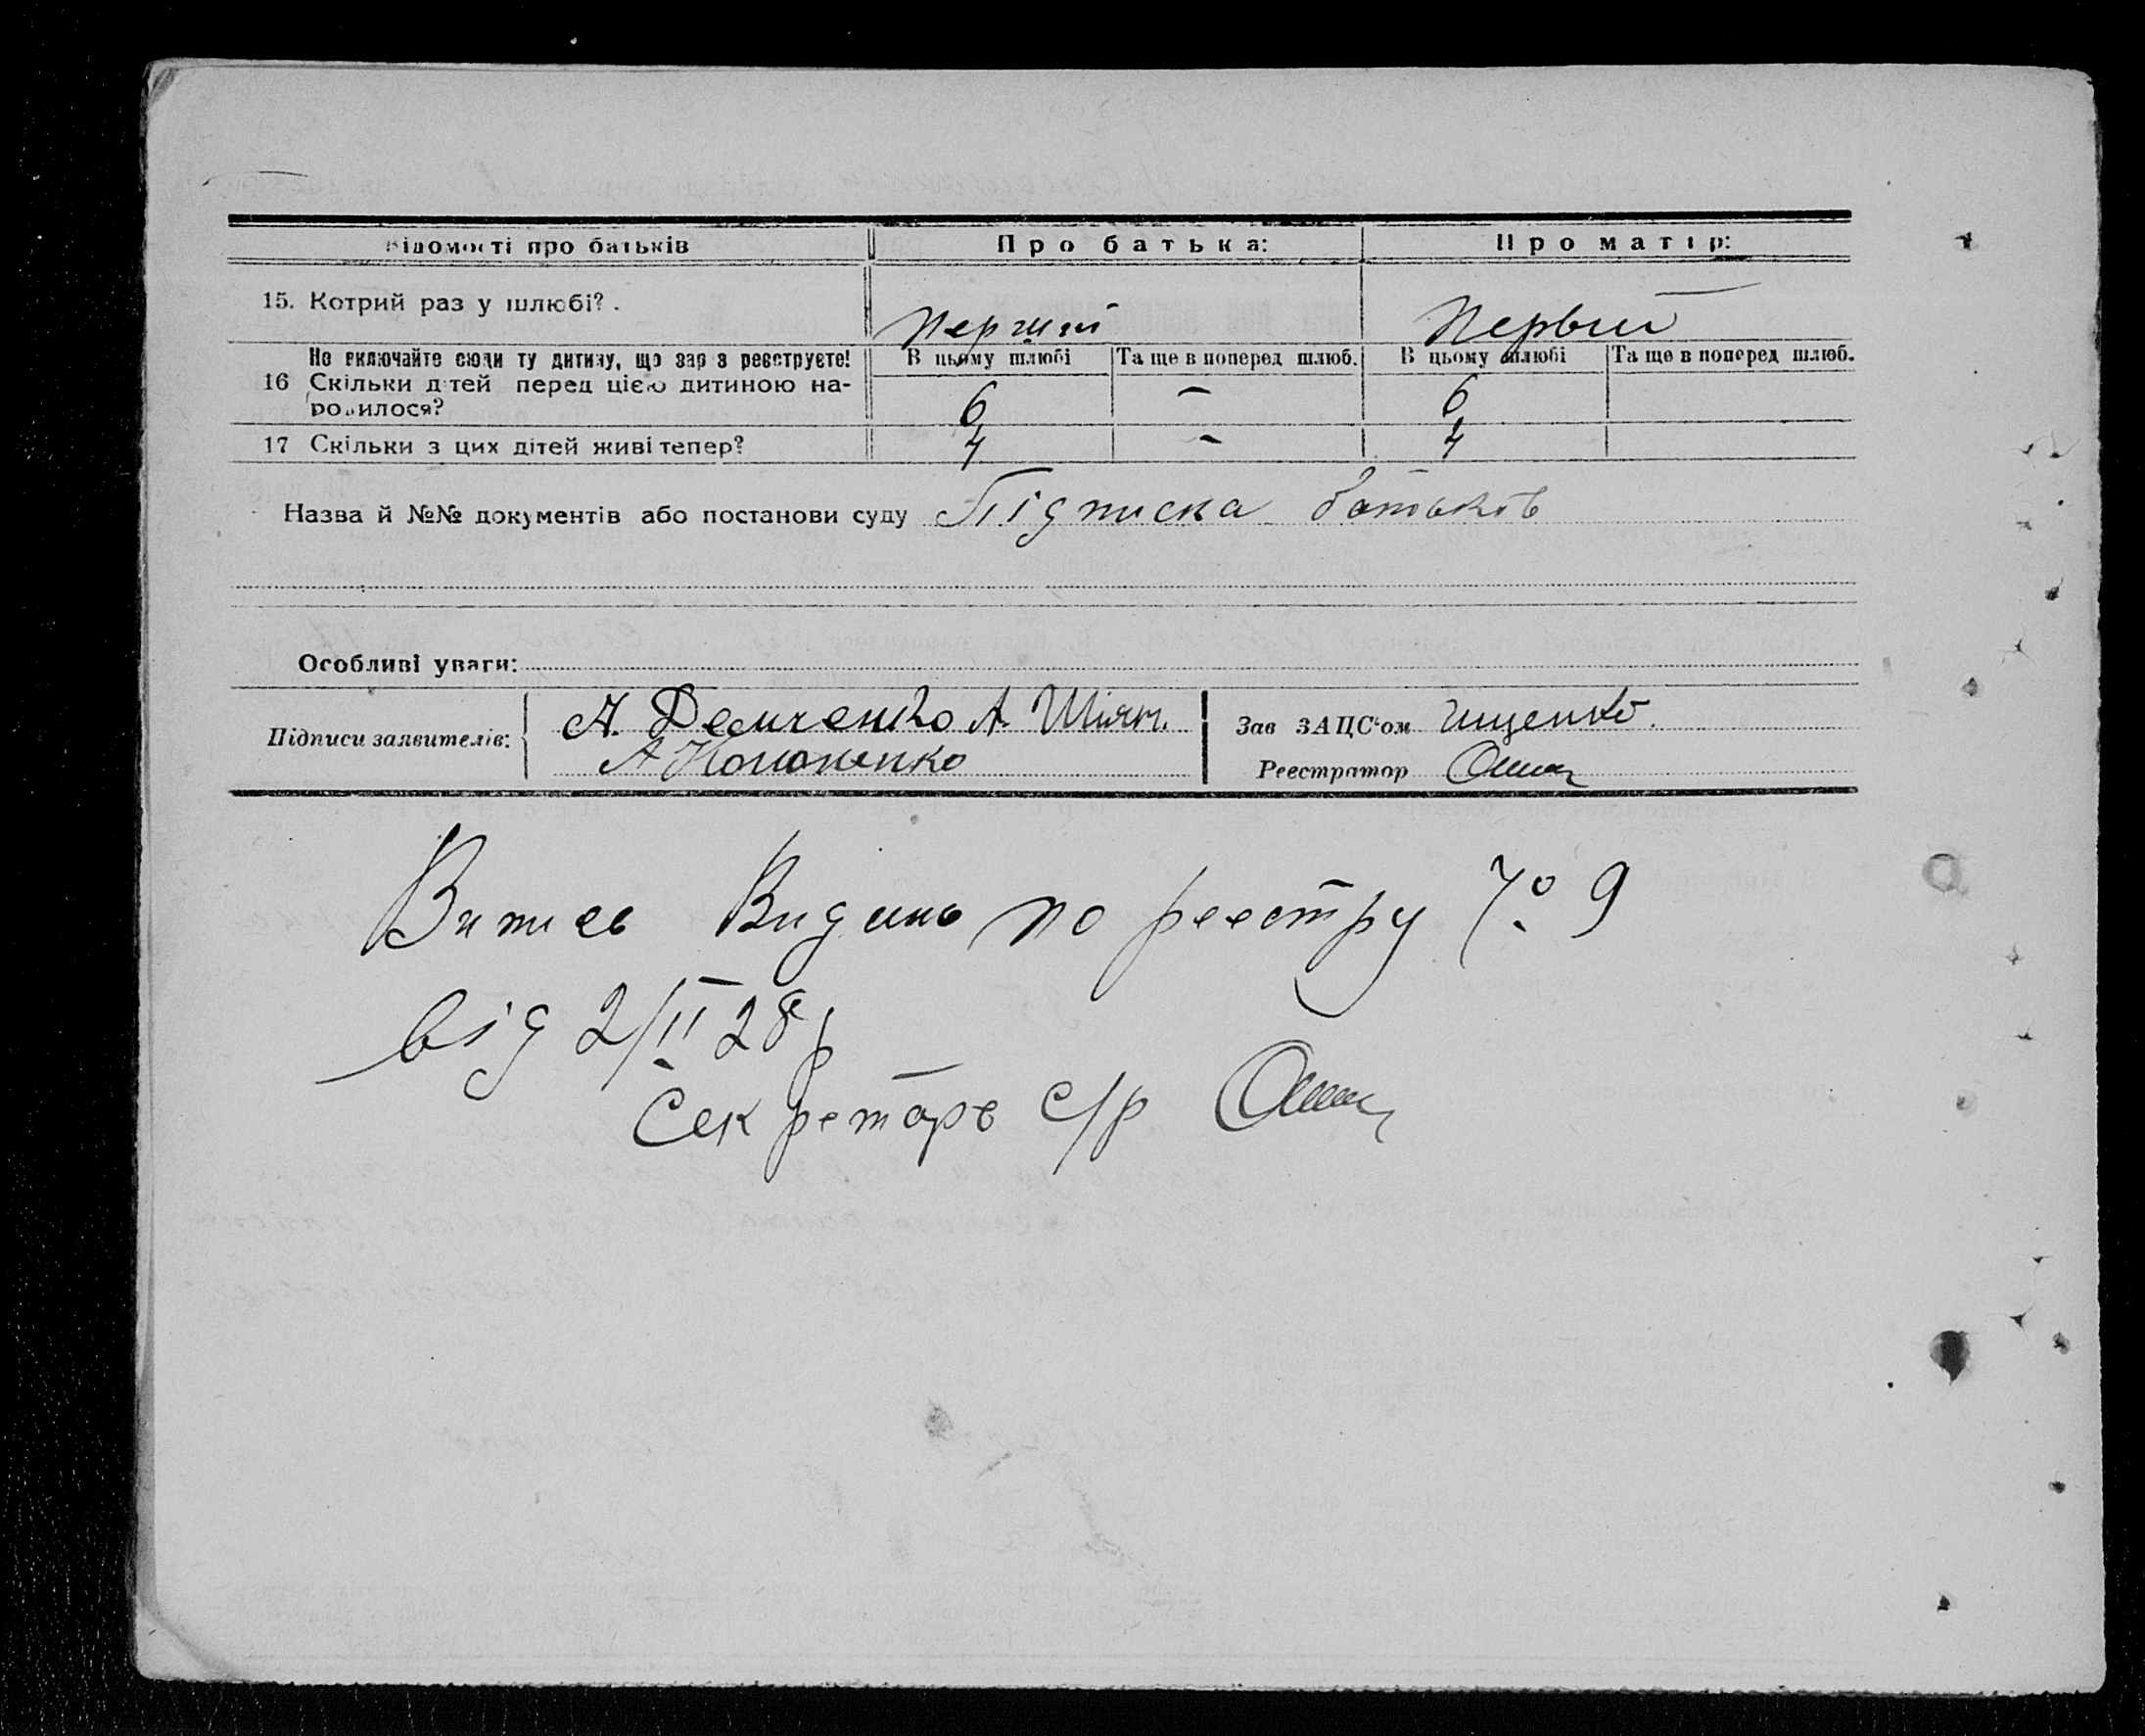 Відомості про батьків Про батька: Про матір:
15. Котрий раз у шлюбі? . перший Первий
Не включайте сюди ту дитину, що зараз реєструєте! В цьому шлюбі Та ще в поперед шлюб. В цьому шлюбі Та ще в поперед шлюб.
16 Скільки дітей перед цією дитиною на-
родилося? 6 – 6
17 Скільки з цих дітей живі тепер? 4 - 4
Назва й №№ документів або постанови суду Підписка батьків
Особливі уваги:
Підписи заявителів: А. Демченко А.
А Кононенко
Зав ЗАЦС'ом Ищенко.
Реєстратор
Витись Видано по реестру № 9
від 2/II 28 р
Секретарь с/р